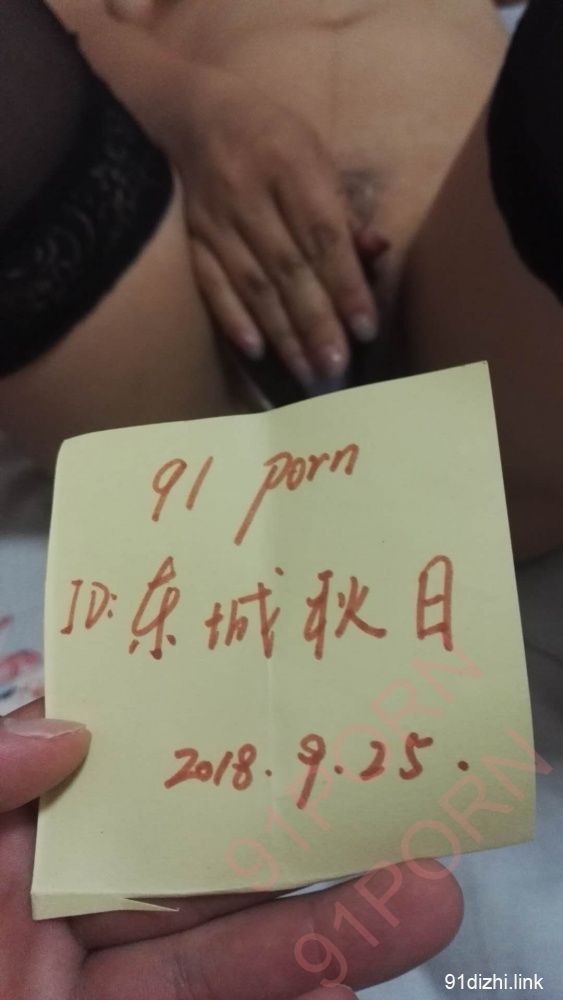 91 porn
ID: 东城秋日
2018.9.25.
91PORN
91PORN
91dizhi.link